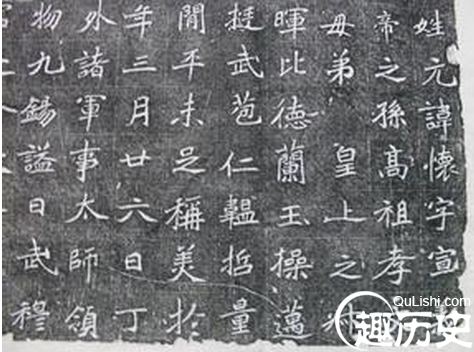 姓元諱懷字宣
帝之孫髙祖孝
母弟皇上之
暉比德蘭玉操邁
挺武苞仁韞哲量
閒平未足稱美於
年三月廿六日丁
外諸軍事太師領
物九錫謚曰武穆
QuLishi.com
趣历史